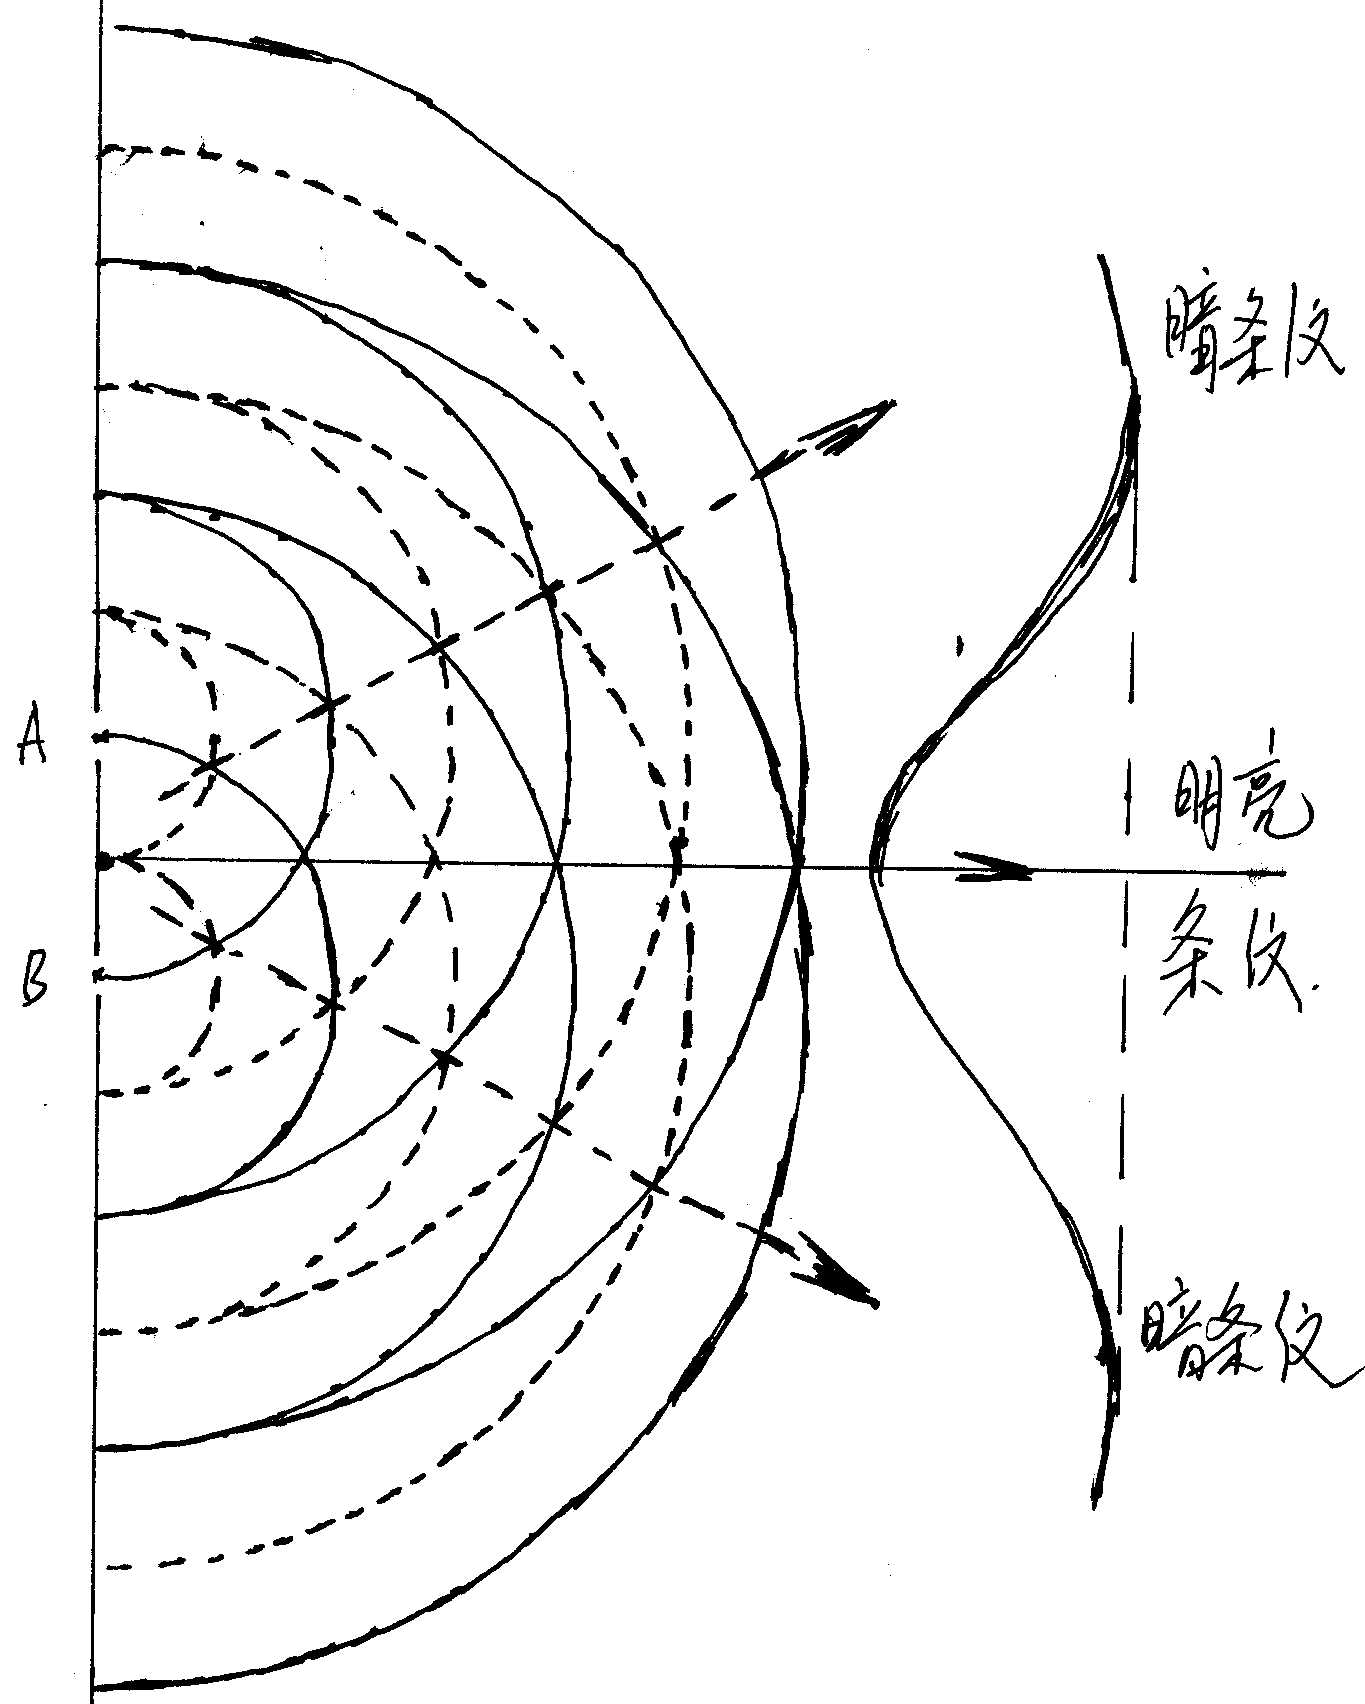 暗条纹
A
明亮
B
条纹.
暗条纹